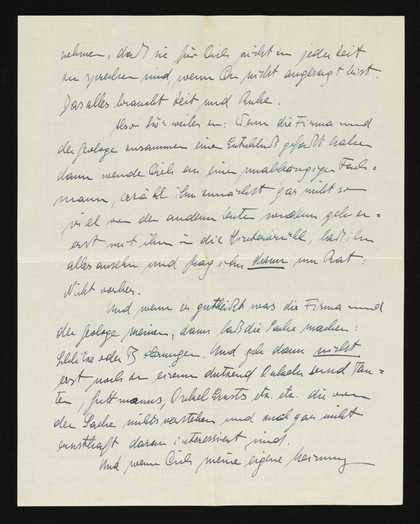 nehmen, daß sie für Dich nicht zu jeder Zeit
zu sprechen sind, wenn Du nicht angesagt bist.
Das alles braucht Zeit und Ruhe.
Also hör weiter zu: Wenn die Firma und
der Geologe zusammen einen Entschluß gefaßt haben
dann wende Dich an einen unabhängigen Fach-
mann, erzähl ihm zunächst gar nicht so
viel von den andern Leuten sondern geh
erst mit ihm in die, laß ihn
alles ansehn und frag ihn dann um Rat.
Nicht vorher.
Und wenn er gutheißt was die Firma und
der Geologe meinen, dann laß die Sache machen:
oder Und geh dann nicht
erst noch zu einem dutzend Onkeln und Tan-
ten, Guttmanns, Onkel Ernsts etc. etc. die von
der Sache nichts verstehen und auch gar nicht
ernsthaft daran interessiert sind.
Und wenn Dich meine eigene Meinung